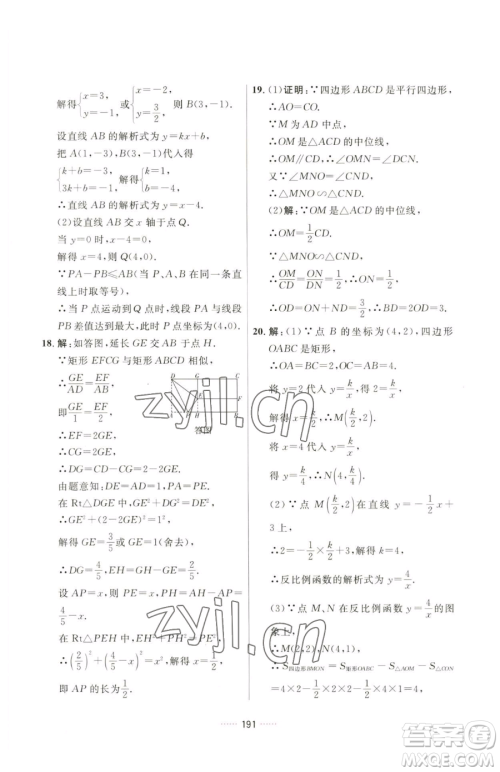 解得{x=3, y=-1 或{x=2, y=-3/2, 则 B(3,-1).
设直线 AB 的解析式为 y=kx+b,
把 A(1,-3), B(3,-1)代入得
{k+b=-3, 3k+b=-1, 解得{k=1, b=-4.
∴直线 AB 的解析式为 y=x-4.
(2)设直线 AB 交 x 轴于点 Q.
当 y=0 时,x-4=0,
解得 x=4,则 Q(4,0).
∵PA-PB≤AB(当 P、A、B 在同一条直线上时取等号)
∴当 P 点运动到 Q 点时,线段 PA 与线段 PB 差值达到最大,此时 P(4,0).
18. 解:如答图,延长 GE 交 AB 于点 H.
∵矩形 EFCG 与矩形 ABCD 相似,
∴GE/AD=EF/AB,
即GE/1=EF/2,
∴EF=2GE,
∴CG=2GE.
∴DG=CD-CG=2-2GE.
由题意知:DE=AD=1,
在 Rt△DGE 中,DG²+GE²=DE²
∴GE²+(2-2GE)²=1²,
解得 GE=3/5或 GE=1(舍去),
∴DG=4/5,EH=GH-GE=2/5.
设 AP=x,则 PE=AP=x,PH=AH-AP=4/5-x,
在 Rt△PEH 中,EH²+PH²=PE²,
∴(2/5)²+(4/5-x)²=x²,解得 x=1/2.
即 AP 的长为1/2.
答图
19. (1)证明:∵四边形 ABCD 是平行四边形,
∴AO=CO.
∵M 为 AD 中点,
∴OM 是△ACD 的中位线.
∴OM∥CD,∴∠OMN=∠DCN.
又∵∠MNO=∠CND,
∴△MNO∽△CND.
(2)解:∵OM 是△ACD 的中位线,
∴OM=1/2CD.
∵△MNO∽△CND,
∴OM/CD=ON/DN=1/2,∴ON=1/2,
∴OD=ON+ND=3/2,∴BD=2OD=3.
20. 解:(1)∵点 B 的坐标为(4,2),四边形 OABC 是矩形,
∴OA=BC=2,AB=OC=4,
将 y=2 代入 y=k/x,得 2=k/x,
解得 x=k/2,∴M(k/2,2).
将 x=4 代入 y=k/x,得 y=k/4,
∴N(4,k/4).
(2)∵点 M(k/2,2)在直线 y=-1/2x+3 上,
∴2=-1/2×k/2+3,解得 k=4,
∴反比例函数的解析式为 y=4/x.
(3)∵点 M,N 在反比例函数 y=4/x的图象上,
∴M(2,2),N(4,1),
∴S四边形BMON=S矩形OABC-S△AOM-S△CON
=4×2-1/2×4-1/2×4=4.
191
zyjl.cn
zyjl.cn
答案圈
MXQE.COM